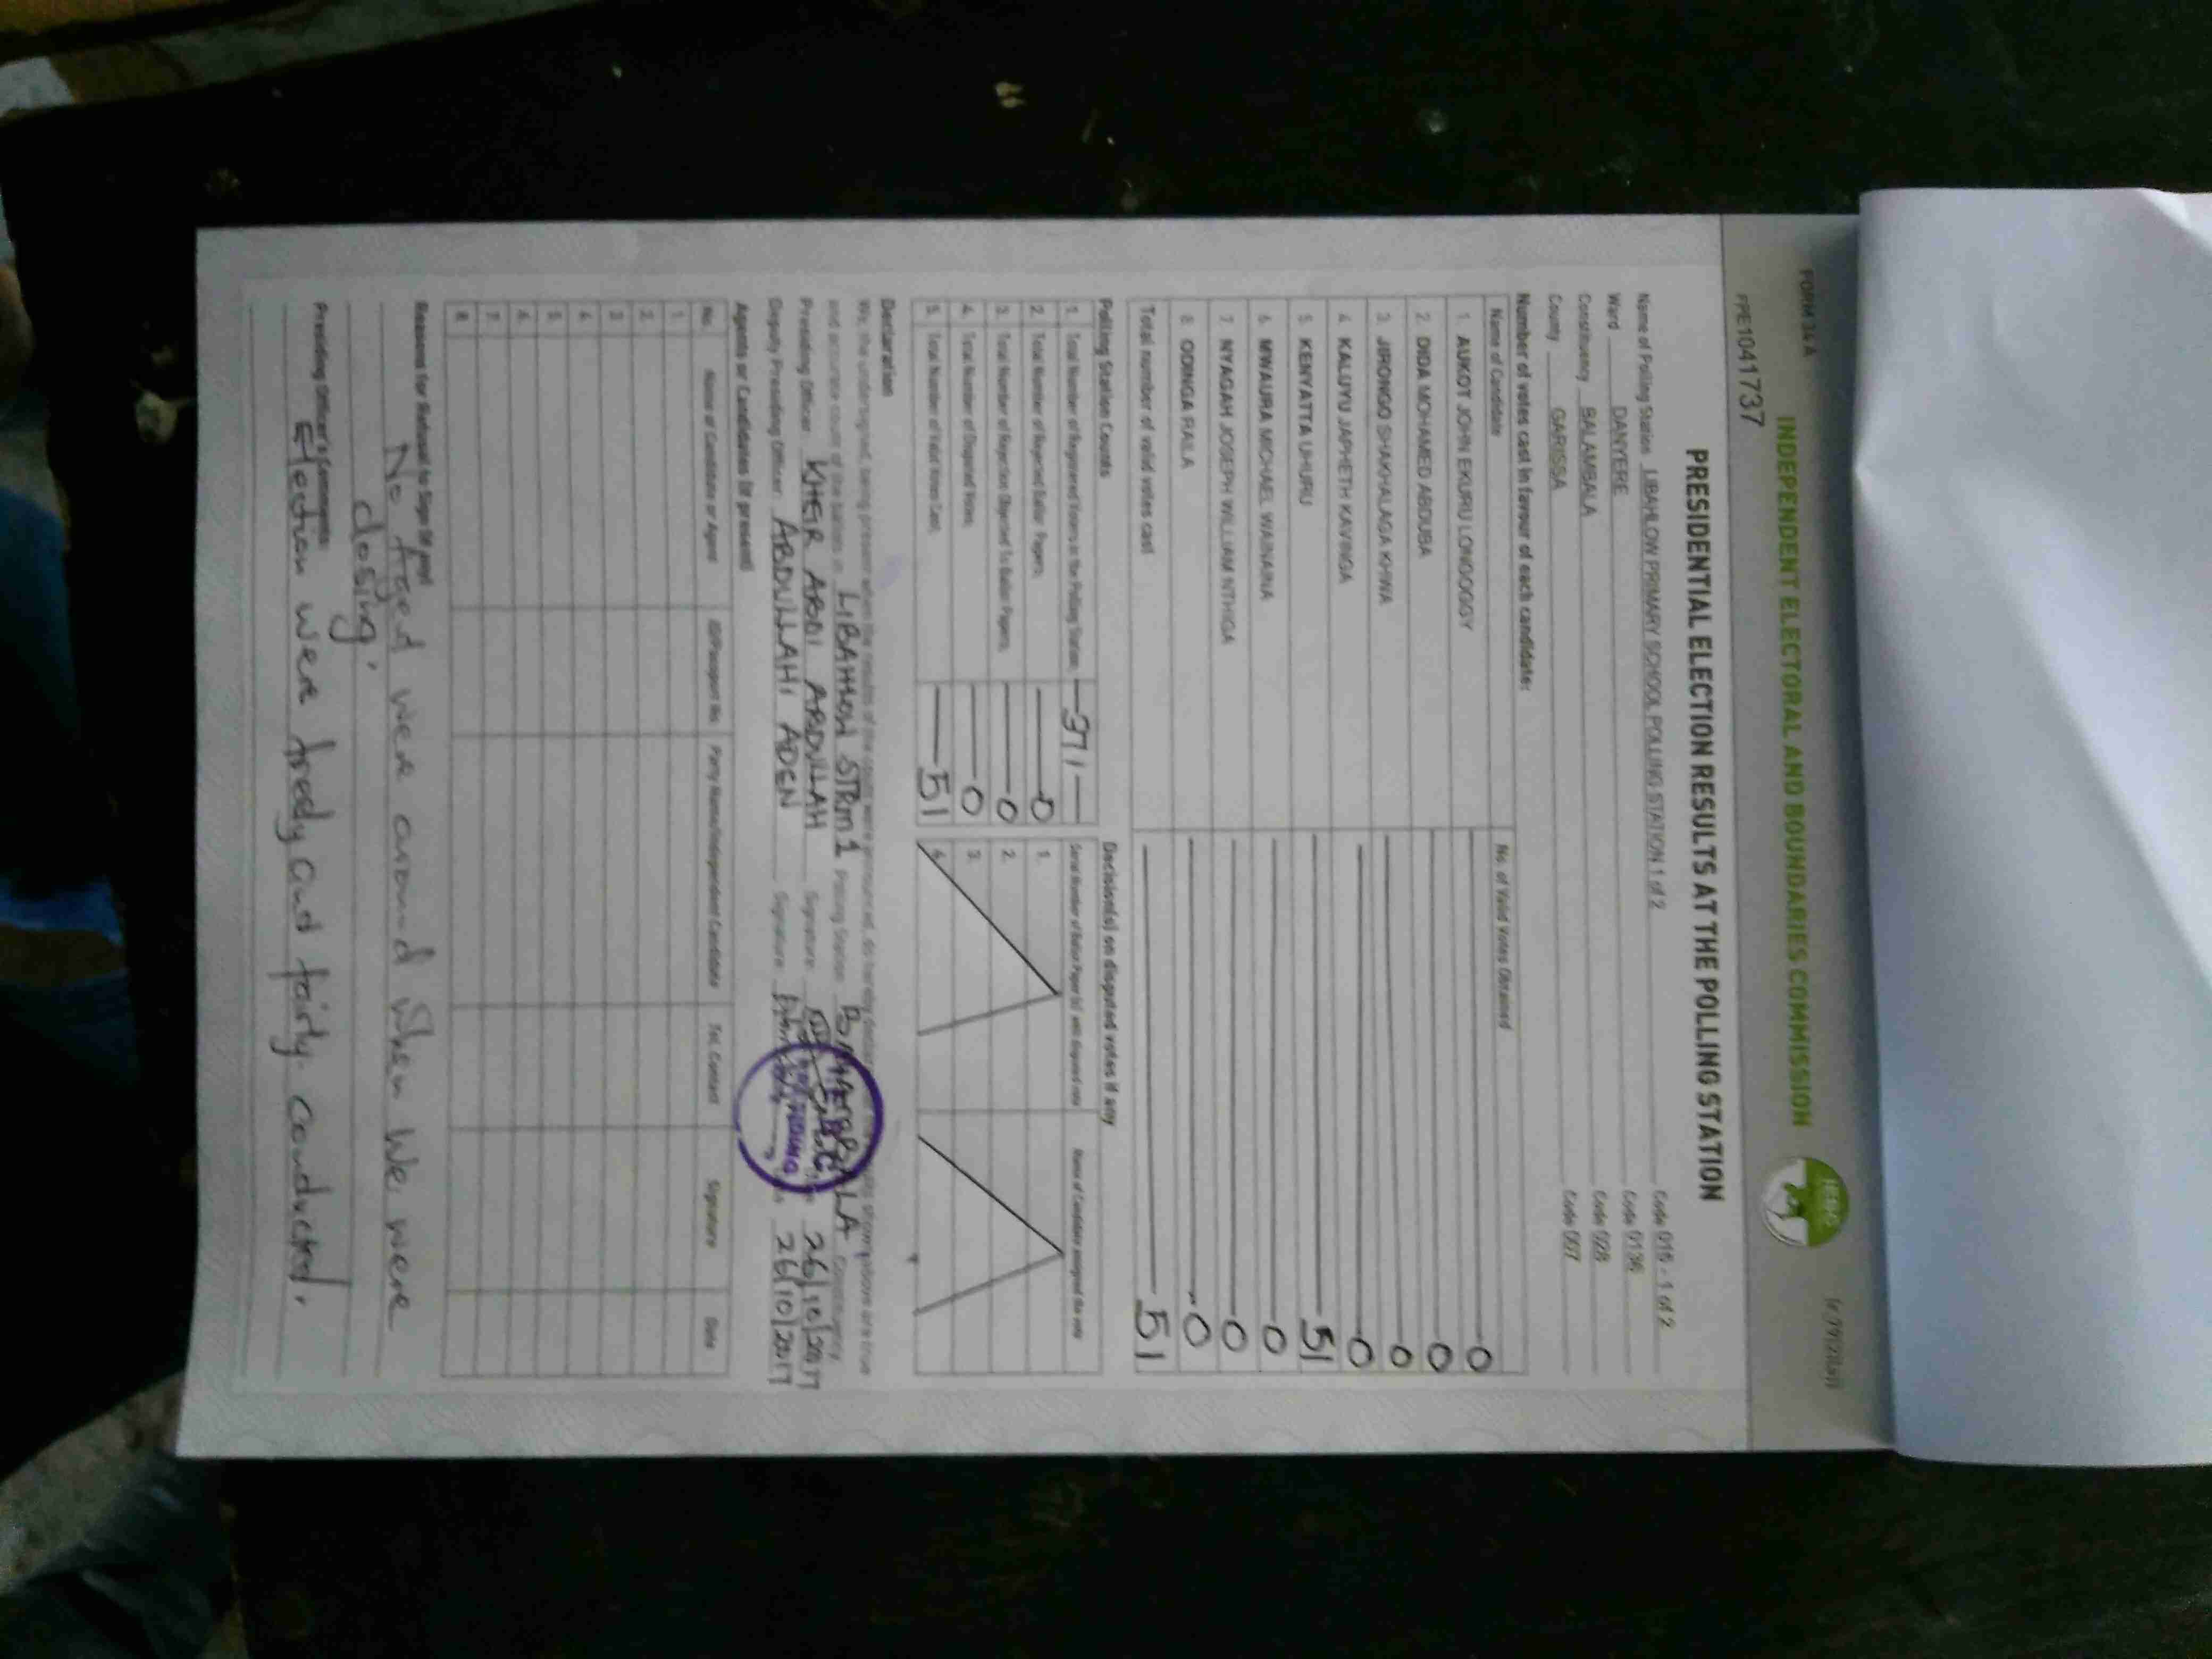 FORM 34A
INDEPENDENT ELECTORAL AND BOUNDARIES COMMISSION
IEBC
FPE1041737
PRESIDENTIAL ELECTION RESULTS AT THE POLLING STATION
Name of Polling Station LIBAHLOW PRIMARY SCHOOL POLLING STATION 1 of 2 Code 016 - 1 of 2
Ward DANYERE Code 0136
Constituency BALAMBALA Code 028
County GARISSA Code 007
Number of votes cast in favour of each candidate:
Name of Candidate No. of Valid Votes Obtained
1. AUKOT JOHN EKURU LONGOGGY 0
2. DIDA MOHAMED ABDUBA 0
3. JIRONGO SHAKHALAGA KHWA 0
4. KALUYU JAPHETH KAVINGA 0
5. KENYATTA UHURU 51
6. MWAURA MICHAEL WAINAINA 0
7. NYAGAH JOSEPH WILLIAM NTHIGA 0
8. ODINGA RAILA 0
Total number of valid votes cast 51
Polling Station Counts Decision(s) on disputed votes if any
1. Total Number of Registered Voters in the Polling Station 371 Serial Number of Ballot Paper (s) with disputed vote Name of Candidate assigned the vote
2. Total Number of Rejected Ballot Papers 0 1.
3. Total Number of Rejection Objected To Ballot Papers 0 2.
4. Total Number of Disputed Votes 0 3.
5. Total Number of Valid Votes Cast 51 4.
Declaration
We, the undersigned, being present when the results of the count were announced, do hereby declare shown above are true
and accurate count of the ballots in LIBAHLOW STRM 1 Polling Station Constituency
Presiding Officer KHEIR ABDI ABDULLAH Signature 26/10/2017
Deputy Presiding Officer ABDULLAHI ADEN Signature 26/10/2017
Agents or Candidates (if present)
No. Name of Candidate or Agent ID/Passport No. Party Name/Independent Candidate Tel. Contact Signature Date
1.
2.
3.
4.
5.
6.
7.
8.
Reasons for Refusal to Sign (if any)
No Agent were around when we were
closing.
Presiding Officer's Comments:
Election were freely and fairly conducted.